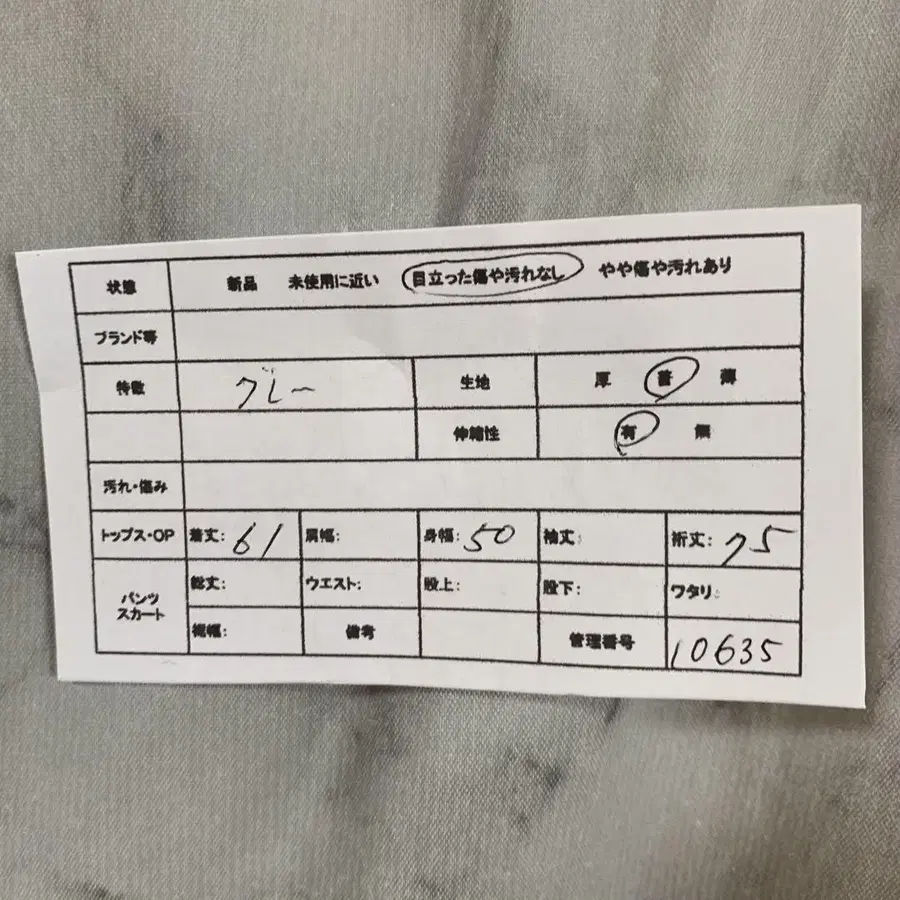 状態 新品 未使用に近い 目立った傷や汚れなし やや傷や汚れあり
ブランド等
特徴 グレー 生地 厚 普 薄
伸縮性 有 無
汚れ・傷み
トップス・OP 着丈: 61 肩幅: 身幅: 50 袖丈: 裄丈: 75
パンツ スカート 総丈: ウエスト: 股上: 股下: ワタリ:
裾幅: 備考 管理番号 10635